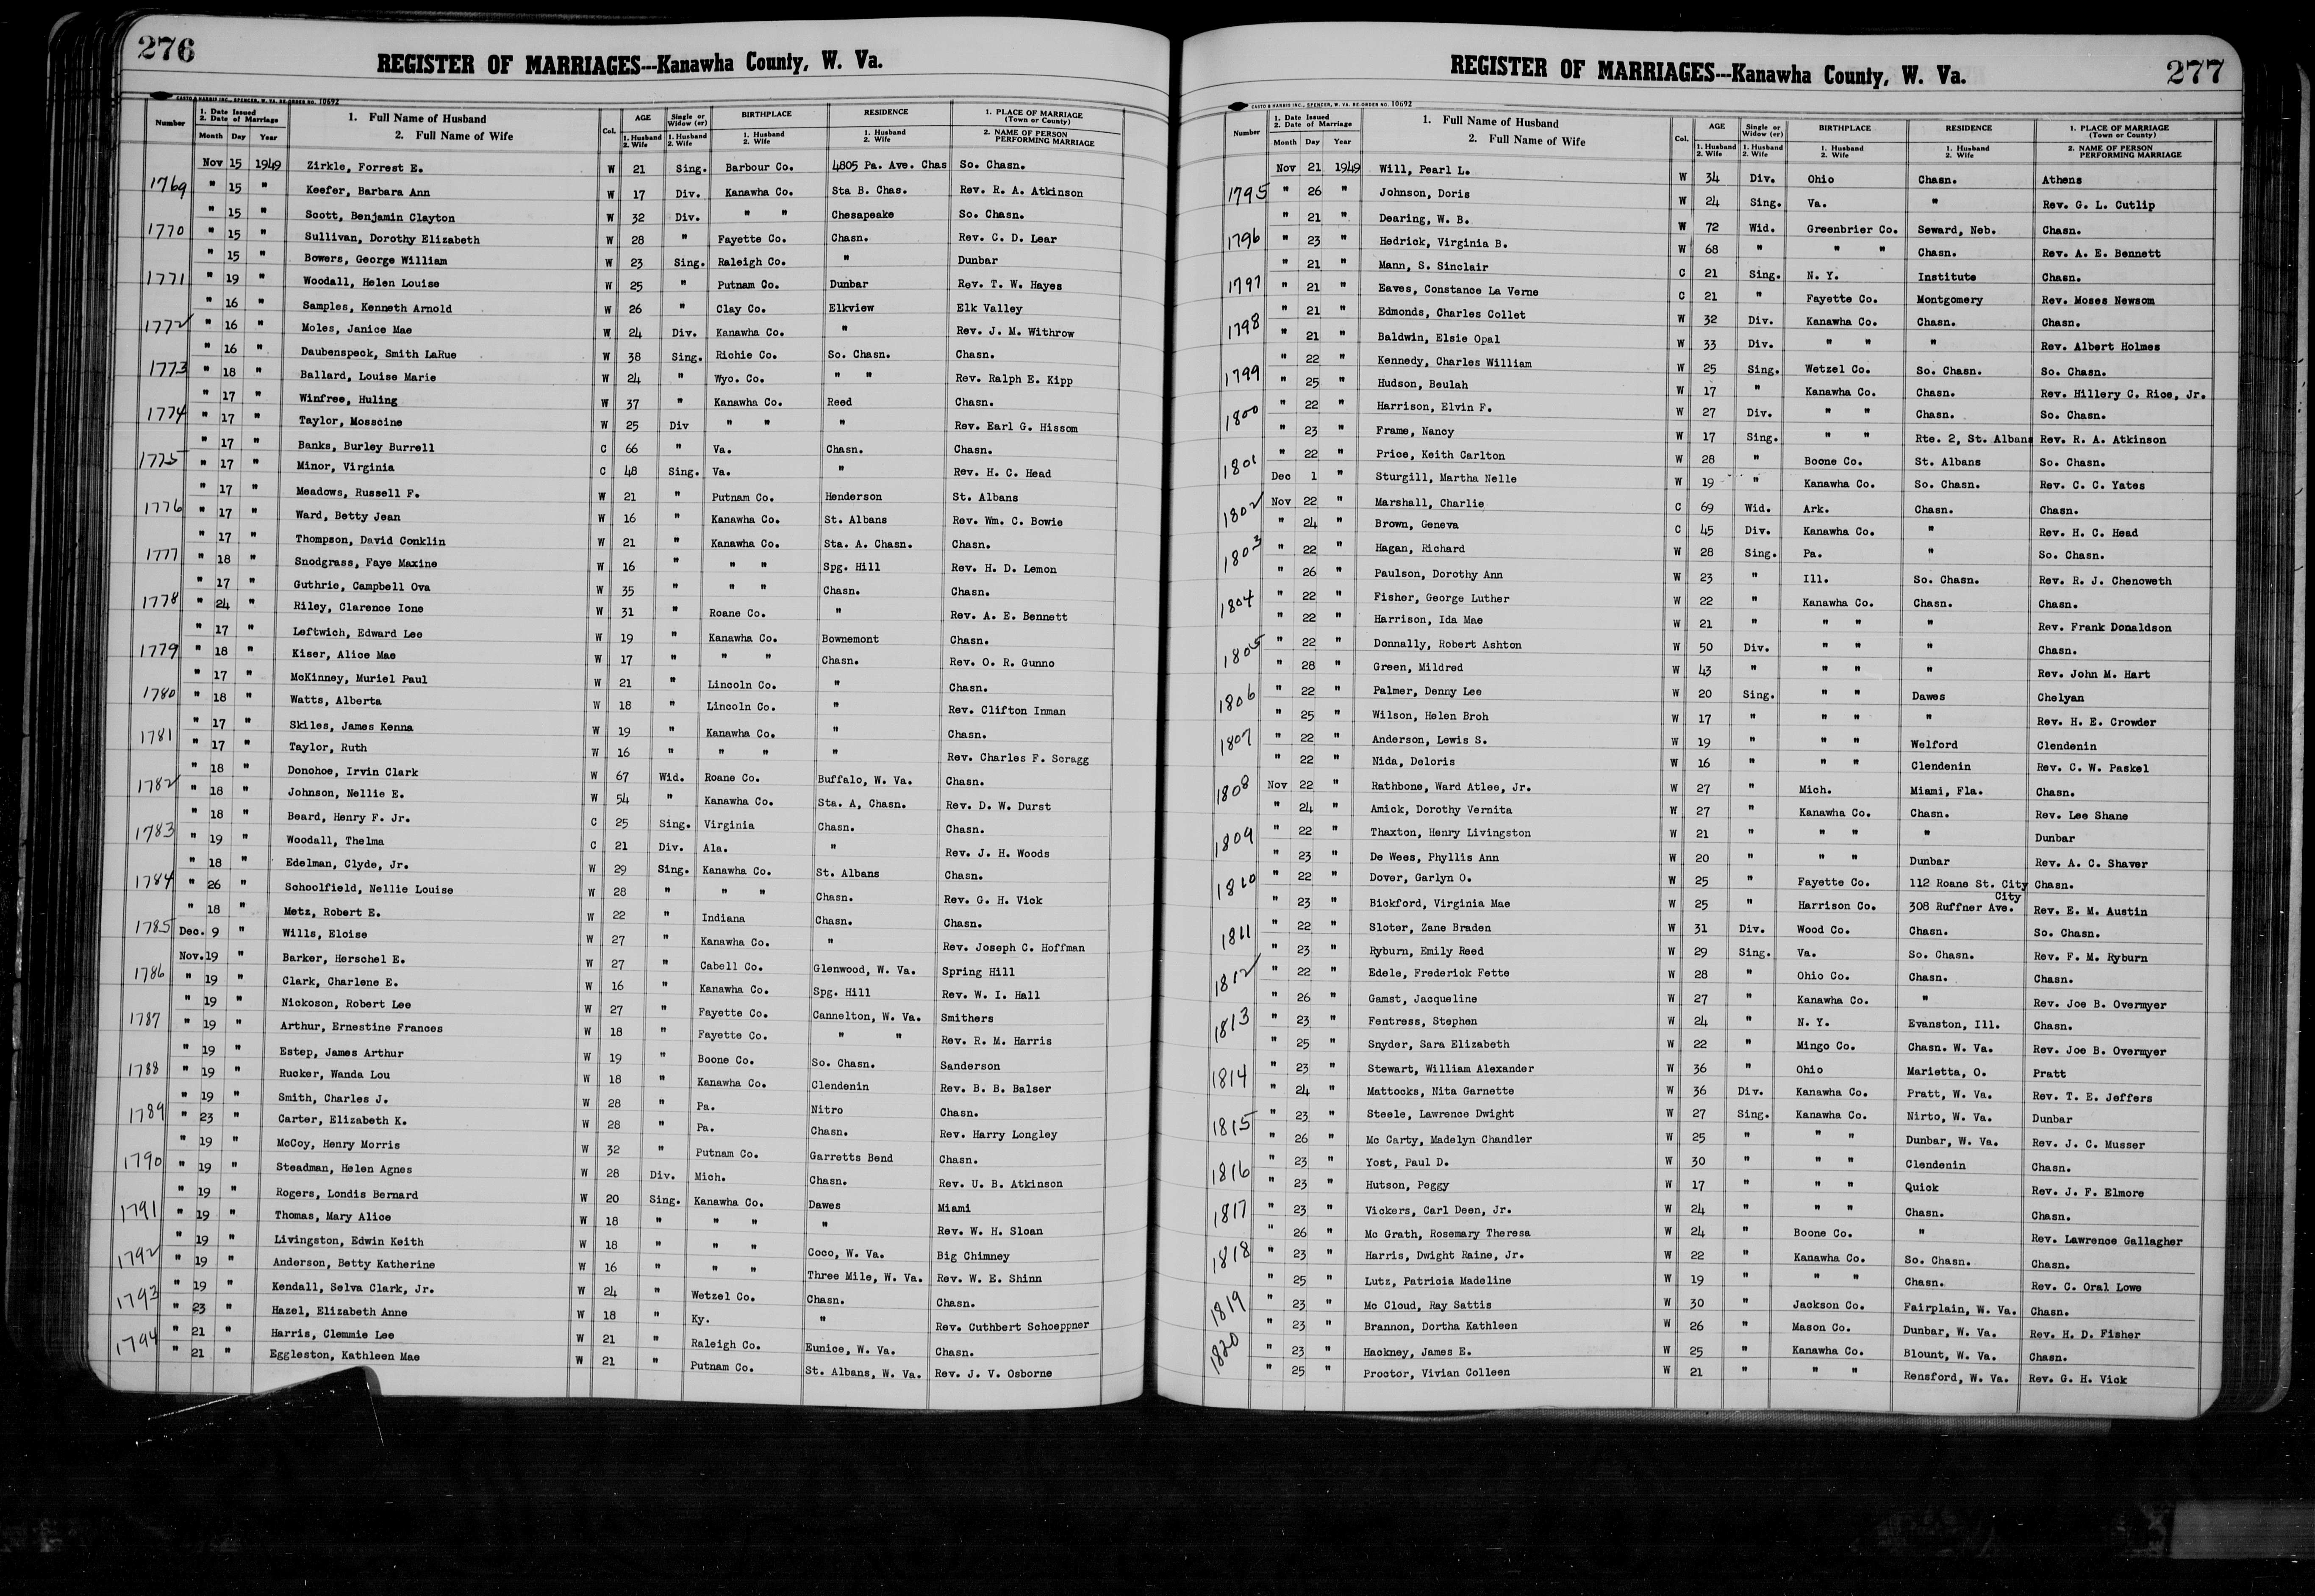 276
REGISTER OF MARRIAGES---Kanawha County, W. Va.
CASTO & HARRIS INC., SPENCER, W. VA. RE-ORDER NO. 10692
Number | 1. Date Issued 2. Date of Marriage Month Day Year | 1. Full Name of Husband 2. Full Name of Wife | Col. | AGE 1. Husband 2. Wife | Single or Widow (er) 1. Husband 2. Wife | BIRTHPLACE 1. Husband 2. Wife | RESIDENCE 1. Husband 2. Wife | 1. PLACE OF MARRIAGE (Town or County) 2. NAME OF PERSON PERFORMING MARRIAGE
Nov 15 1949 Zirkle, Forrest E. W 21 Sing. Barbour Co. 4805 Pa. Ave. Chas So. Chasn.
1769 " 15 " Keefer, Barbara Ann W 17 Div. Kanawha Co. Sta B. Chas. Rev. R. A. Atkinson
" 15 " Scott, Benjamin Clayton W 32 Div. " " Chesapeake So. Chasn.
1770 " 15 " Sullivan, Dorothy Elizabeth W 28 " Fayette Co. Chasn. Rev. C. D. Lear
" 15 " Bowers, George William W 23 Sing. Raleigh Co. " Dunbar
1771 " 19 " Woodall, Helen Louise W 25 " Putnam Co. Dunbar Rev. T. W. Hayes
" 16 " Samples, Kenneth Arnold W 26 " Clay Co. Elkview Elk Valley
1772 " 16 " Moles, Janice Mae W 24 Div. Kanawha Co. " Rev. J. M. Withrow
" 16 " Daubenspeck, Smith LaRue W 38 Sing. Richie Co. So. Chasn. Chasn.
1773 " 18 " Ballard, Louise Marie W 24 " Wyo. Co. " " Rev. Ralph E. Kipp
" 17 " Winfree, Huling W 37 " Kanawha Co. Reed Chasn.
1774 " 17 " Taylor, Mosscine W 25 Div " " " Rev. Earl G. Hissom
" 17 " Banks, Burley Burrell C 66 " Va. Chasn. Chasn.
1775 " 17 " Minor, Virginia C 48 Sing. Va. " Rev. H. C. Head
" 17 " Meadows, Russell F. W 21 " Putnam Co. Henderson St. Albans
1776 " 17 " Ward, Betty Jean W 16 " Kanawha Co. St. Albans Rev. Wm. C. Bowie
" 17 " Thompson, David Conklin W 21 " Kanawha Co. Sta. A. Chasn. Chasn.
1777 " 18 " Snodgrass, Faye Maxine W 16 " " " Spg. Hill Rev. H. D. Lemon
" 17 " Guthrie, Campbell Ova W 35 " " " Chasn. Chasn.
1778 " 24 " Riley, Clarence Ione W 31 " Roane Co. " Rev. A. E. Bennett
" 17 " Leftwich, Edward Lee W 19 " Kanawha Co. Bownemont Chasn.
1779 " 18 " Kiser, Alice Mae W 17 " " " Chasn. Rev. O. R. Gunno
" 17 " McKinney, Muriel Paul W 21 " Lincoln Co. " Chasn.
1780 " 18 " Watts, Alberta W 18 " Lincoln Co. " Rev. Clifton Inman
" 17 " Skiles, James Kenna W 19 " Kanawha Co. " Chasn.
1781 " 17 " Taylor, Ruth W 16 " " " " Rev. Charles F. Scragg
" 18 " Donohoe, Irvin Clark W 67 Wid. Roane Co. Buffalo, W. Va. Chasn.
1782 " 18 " Johnson, Nellie E. W 54 " Kanawha Co. Sta. A, Chasn. Rev. D. W. Durst
" 18 " Beard, Henry F. Jr. C 25 Sing. Virginia Chasn. Chasn.
1783 " 19 " Woodall, Thelma C 21 Div. Ala. " Rev. J. H. Woods
" 18 " Edelman, Clyde, Jr. W 29 Sing. Kanawha Co. St. Albans Chasn.
1784 " 26 " Schoolfield, Nellie Louise W 28 " " " Chasn. Rev. G. H. Vick
" 18 " Metz, Robert E. W 22 " Indiana Chasn. Chasn.
1785 Dec. 9 " Wills, Eloise W 27 " Kanawha Co. " Rev. Joseph C. Hoffman
Nov. 19 " Barker, Herschel E. W 27 " Cabell Co. Glenwood, W. Va. Spring Hill
1786 " 19 " Clark, Charlene E. W 16 " Kanawha Co. Spg. Hill Rev. W. I. Hall
" 19 " Nickoson, Robert Lee W 27 " Fayette Co. Cannelton, W. Va. Smithers
1787 " 19 " Arthur, Ernestine Frances W 18 " Fayette Co. " " Rev. R. M. Harris
" 19 " Estep, James Arthur W 19 " Boone Co. So. Chasn. Sanderson
1788 " 19 " Rucker, Wanda Lou W 18 " Kanawha Co. Clendenin Rev. B. B. Balser
" 19 " Smith, Charles J. W 28 " Pa. Nitro Chasn.
1789 " 23 " Carter, Elizabeth K. W 28 " Pa. Chasn. Rev. Harry Longley
" 19 " McCoy, Henry Morris W 32 " Putnam Co. Garretts Bend Chasn.
1790 " 19 " Steadman, Helen Agnes W 28 Div. Mich. Chasn. Rev. U. B. Atkinson
" 19 " Rogers, Londis Bernard W 20 Sing. Kanawha Co. Dawes Miami
1791 " 19 " Thomas, Mary Alice W 18 " " " " Rev. W. H. Sloan
" 19 " Livingston, Edwin Keith W 18 " " " Coco, W. Va. Big Chimney
1792 " 19 " Anderson, Betty Katherine W 16 " " " Three Mile, W. Va. Rev. W. E. Shinn
" 19 " Kendall, Selva Clark, Jr. W 24 " Wetzel Co. Chasn. Chasn.
1793 " 23 " Hazel, Elizabeth Anne W 18 " Ky. " Rev. Cuthbert Schoeppner
" 21 " Harris, Clemmie Lee W 21 " Raleigh Co. Eunice, W. Va. Chasn.
1794 " 21 " Eggleston, Kathleen Mae W 21 " Putnam Co. St. Albans, W. Va. Rev. J. V. Osborne
277
REGISTER OF MARRIAGES---Kanawha County, W. Va.
CASTO & HARRIS INC., SPENCER, W. VA. RE-ORDER NO. 10692
Number | 1. Date Issued 2. Date of Marriage Month Day Year | 1. Full Name of Husband 2. Full Name of Wife | Col. | AGE 1. Husband 2. Wife | Single or Widow (er) 1. Husband 2. Wife | BIRTHPLACE 1. Husband 2. Wife | RESIDENCE 1. Husband 2. Wife | 1. PLACE OF MARRIAGE (Town or County) 2. NAME OF PERSON PERFORMING MARRIAGE
Nov 21 1949 Will, Pearl L. W 34 Div. Ohio Chasn. Athens
1795 " 26 " Johnson, Doris W 24 Sing. Va. " Rev. G. L. Cutlip
" 21 " Dearing, W. B. W 72 Wid. Greenbrier Co. Seward, Neb. Chasn.
1796 " 23 " Hedrick, Virginia B. W 68 " " " Chasn. Rev. A. E. Bennett
" 21 " Mann, S. Sinclair C 21 Sing. N. Y. Institute Chasn.
1797 " 21 " Eaves, Constance La Verne C 21 " Fayette Co. Montgomery Rev. Moses Newsom
" 21 " Edmonds, Charles Collet W 32 Div. Kanawha Co. Chasn. Chasn.
1798 " 21 " Baldwin, Elsie Opal W 33 Div. " " " Rev. Albert Holmes
" 22 " Kennedy, Charles William W 25 Sing. Wetzel Co. So. Chasn. So. Chasn.
1799 " 25 " Hudson, Beulah W 17 " Kanawha Co. Chasn. Rev. Hillery C. Rice, Jr.
" 22 " Harrison, Elvin F. W 27 Div. " " Chasn. So. Chasn.
1800 " 23 " Frame, Nancy W 17 Sing. " " Rte. 2, St. Albans Rev. R. A. Atkinson
" 22 " Price, Keith Carlton W 28 " Boone Co. St. Albans So. Chasn.
1801 Dec 1 " Sturgill, Martha Nelle W 19 " Kanawha Co. So. Chasn. Rev. C. C. Yates
Nov 22 " Marshall, Charlie C 69 Wid. Ark. Chasn. Chasn.
1802 " 24 " Brown, Geneva C 45 Div. Kanawha Co. " Rev. H. C. Head
" 22 " Hagan, Richard W 28 Sing. Pa. " So. Chasn.
1803 " 26 " Paulson, Dorothy Ann W 23 " Ill. So. Chasn. Rev. R. J. Chenoweth
" 22 " Fisher, George Luther W 22 " Kanawha Co. Chasn. Chasn.
1804 " 22 " Harrison, Ida Mae W 21 " " " " Rev. Frank Donaldson
" 22 " Donnally, Robert Ashton W 50 Div. " " " Chasn.
1805 " 28 " Green, Mildred W 43 " " " " Rev. John M. Hart
" 22 " Palmer, Denny Lee W 20 Sing. " " Dawes Chelyan
1806 " 25 " Wilson, Helen Broh W 17 " " " " Rev. H. E. Crowder
" 22 " Anderson, Lewis S. W 19 " " " Welford Clendenin
1807 " 22 " Nida, Deloris W 16 " " " Clendenin Rev. C. W. Paskel
Nov 22 " Rathbone, Ward Atlee, Jr. W 27 " Mich. Miami, Fla. Chasn.
1808 " 24 " Amick, Dorothy Vernita W 27 " Kanawha Co. Chasn. Rev. Lee Shane
" 22 " Thaxton, Henry Livingston W 21 " " " " Dunbar
1809 " 23 " De Wees, Phyllis Ann W 20 " " " Dunbar Rev. A. C. Shaver
" 22 " Dover, Garlyn O. W 25 " Fayette Co. 112 Roane St. City Chasn.
1810 " 23 " Bickford, Virginia Mae W 25 " Harrison Co. 308 Ruffner Ave. City Rev. E. M. Austin
" 22 " Sloter, Zane Braden W 31 Div. Wood Co. Chasn. So. Chasn.
1811 " 23 " Ryburn, Emily Reed W 29 Sing. Va. So. Chasn. Rev. F. M. Ryburn
" 22 " Edele, Frederick Fette W 28 " Ohio Co. Chasn. Chasn.
1812 " 26 " Gamst, Jacqueline W 27 " Kanawha Co. " Rev. Joe B. Overmyer
" 23 " Fentress, Stephen W 24 " N. Y. Evanston, Ill. Chasn.
1813 " 25 " Snyder, Sara Elizabeth W 22 " Mingo Co. Chasn. W. Va. Rev. Joe B. Overmyer
" 23 " Stewart, William Alexander W 36 " Ohio Marietta, O. Pratt
1814 " 24 " Mattocks, Nita Garnette W 36 Div. Kanawha Co. Pratt, W. Va. Rev. T. E. Jeffers
" 23 " Steele, Lawrence Dwight W 27 Sing. Kanawha Co. Nirto, W. Va. Dunbar
1815 " 26 " Mc Carty, Madelyn Chandler W 25 " " " Dunbar, W. Va. Rev. J. C. Musser
" 23 " Yost, Paul D. W 30 " " " Clendenin Chasn.
1816 " 23 " Hutson, Peggy W 17 " " " Quick Rev. J. F. Elmore
" 23 " Vickers, Carl Deen, Jr. W 24 " " " Chasn. Chasn.
1817 " 26 " Mc Grath, Rosemary Theresa W 24 " Boone Co. " Rev. Lawrence Gallagher
" 23 " Harris, Dwight Raine, Jr. W 22 " Kanawha Co. So. Chasn. Chasn.
1818 " 25 " Lutz, Patricia Madeline W 19 " " " Chasn. Rev. C. Oral Lowe
" 23 " Mc Cloud, Ray Sattis W 30 " Jackson Co. Fairplain, W. Va. Chasn.
1819 " 23 " Brannon, Dortha Kathleen W 26 " Mason Co. Dunbar, W. Va. Rev. H. D. Fisher
" 23 " Hackney, James E. W 25 " Kanawha Co. Blount, W. Va. Chasn.
1820 " 25 " Proctor, Vivian Colleen W 21 " " " Rensford, W. Va. Rev. G. H. Vick